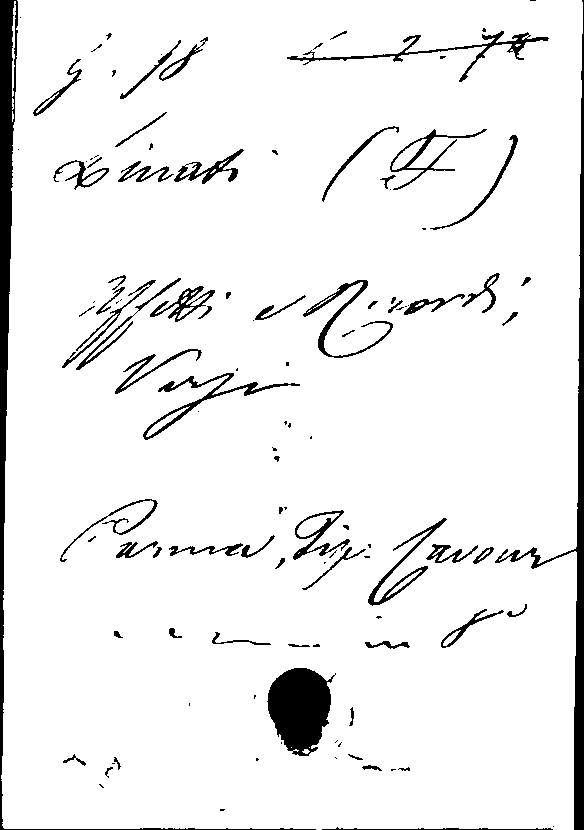 G. 18 6. 2. 7
Linati (F)
Affetti e Ricordi;
Versi
Parma, Tip. Cavour
in 8°